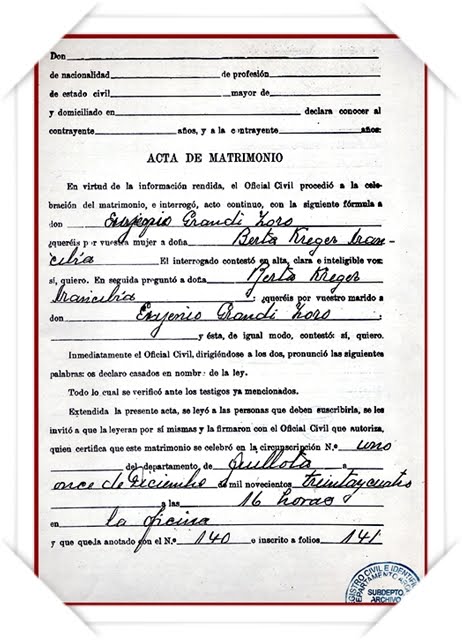 Don
de nacionalidad de profesión
de estado civil mayor de
y domiciliado en declara conocer al
contrayente años, y a la contrayente años.
ACTA DE MATRIMONIO
En virtud de la información rendida, el Oficial Civil procedió a la cele-
bración del matrimonio, e interrogó, acto continuo, con la siguiente fórmula a
don Eugenio Grandi Zoro
¿queréis por vuestra mujer a doña Berta Kreger Aran-
cibia El interrogado contestó en alta, clara e inteligible voz:
sí, quiero. En seguida preguntó a doña Berta Kreger
Arancibia ; ¿queréis por vuestro marido a
don Eugenio Grandi Zoro ;
y ésta, de igual modo, contestó: sí, quiero.
Inmediatamente el Oficial Civil, dirigiéndose a los dos, pronunció las siguientes
palabras: os declaro casados en nombre de la ley.
Todo lo cual se verificó ante los testigos ya mencionados.
Extendida la presente acta, se leyó a las personas que deben suscribirla, se les
invitó a que la leyeran por sí mismas y la firmaron con el Oficial Civil que autoriza,
quien certifica que este matrimonio se celebró en la circunscripción N.º uno
del departamento de Quillota a
once de Diciembre de mil novecientos treintaycuatro
a las 16 horas
en la oficina
y que queda anotado con el N.º 140 e inscrito a folios 141
SUBDEPTO.
ARCHIVO